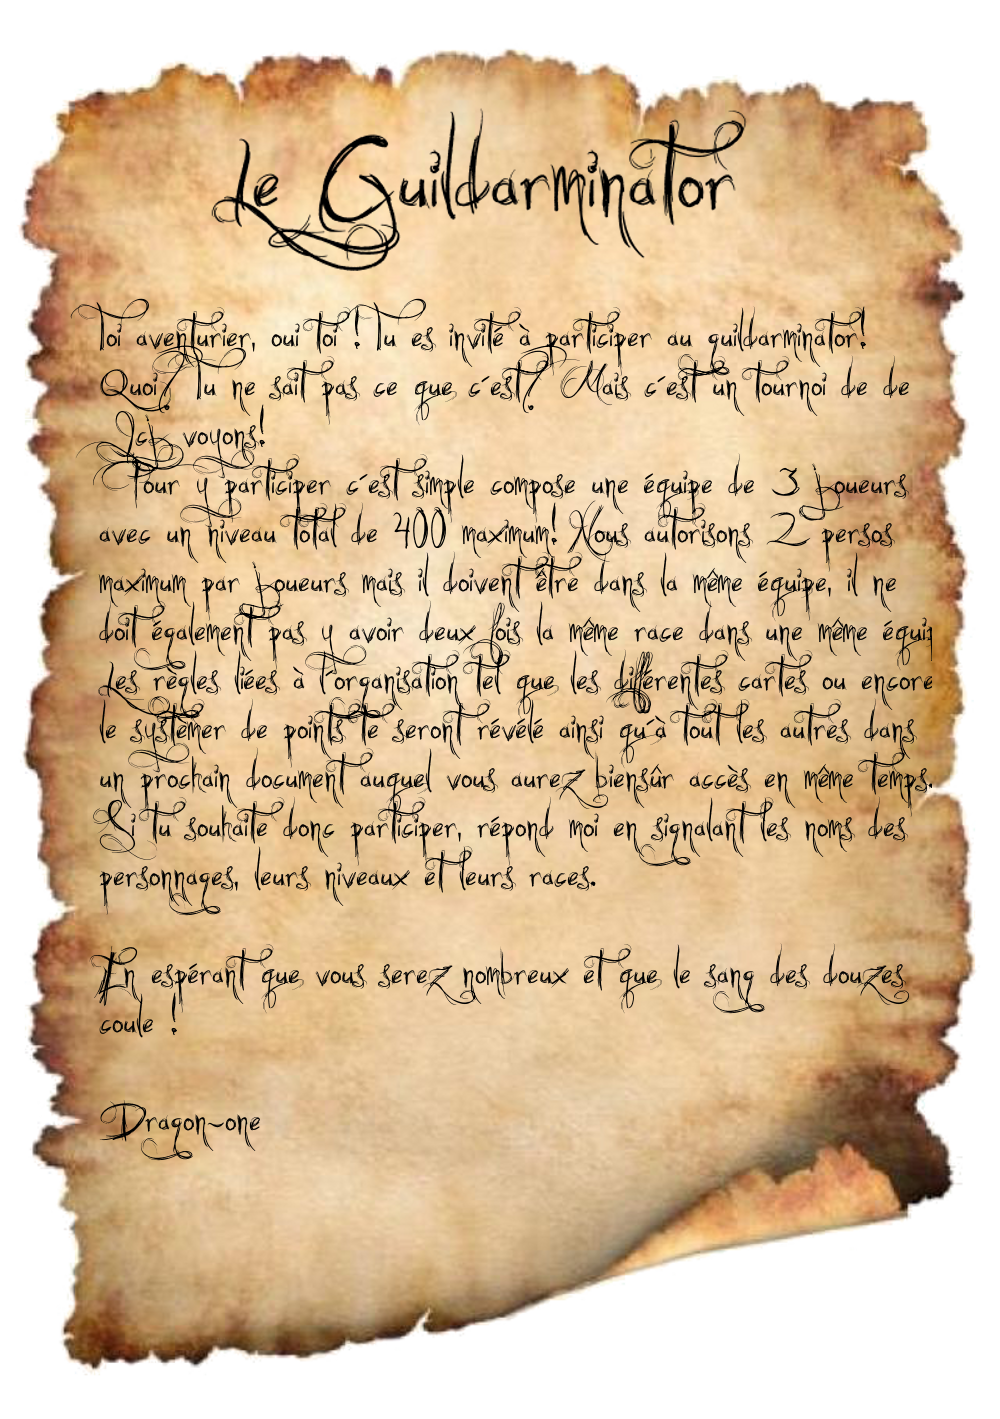 Le Guildarminator
Toi aventurier, oui toi ! Tu es invité à participer au guildarminator!
Quoi? Tu ne sait pas ce que c'est? Mais c'est un tournoi de de
voyons!
Pour y participer c'est simple compose une équipe de 3 joueurs
avec un niveau total de 400 maximum! Nous autorisons 2 persos
maximum par joueurs mais il doivent être dans la même équipe, il ne
doit également pas y avoir deux fois la même race dans une même équip
Les règles liées à l'organisation tel que les différentes cartes ou encore
le systèmer de points te seront révélé ainsi qu'à tout les autres dans
un prochain document auquel vous aurez biensûr accès en même temps.
Si tu souhaite donc participer, répond moi en signalant les noms des
personnages, leurs niveaux et leurs races.
En espérant que vous serez nombreux et que le sang des douzes
coule !
Dragon-one